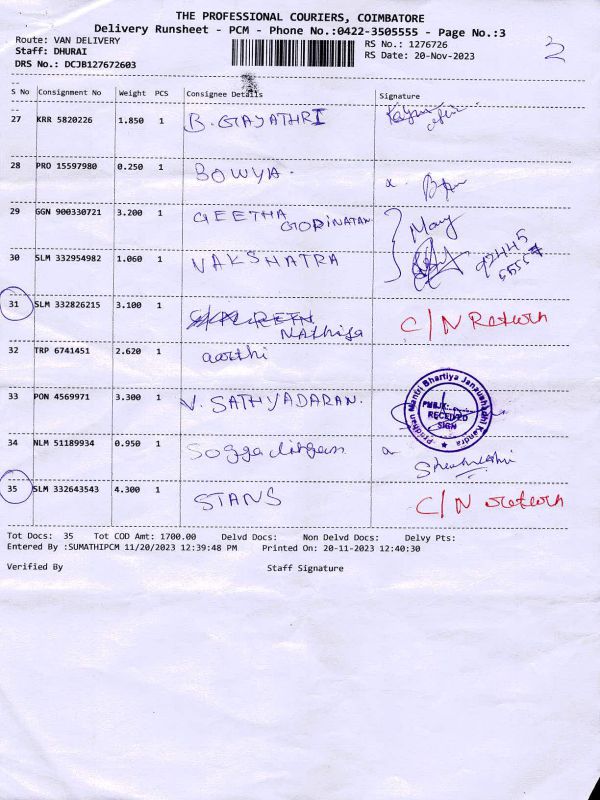 THE PROFESSIONAL COURIERS, COIMBATORE
Delivery Runsheet - PCM - Phone No.:0422-3505555 - Page No.:3
Route: VAN DELIVERY RS No.: 1276726
Staff: DHURAI RS Date: 20-Nov-2023 2
DRS No.: DCJB127672603
S No Consignment No Weight PCS Consignee Details Signature
27 KRR 5820226 1.850 1 B. GAYATHRI
28 PRO 15597980 0.250 1 BOWYA.
29 GGN 900330721 3.200 1 GEETHA
30 SLM 332954982 1.060 1 NAKSHATRA
31 SLM 332826215 3.100 1 C/N Return
NAthiya
32 TRP 6741451 2.620 1 aarthi
33 PON 4569971 3.300 1 V. SATHYADARAN.
Pradhan Mantri Bhartiya Janaushadhi Kendra
PMBJK
RECEIVED
SIGN
34 NLM 51189934 0.950 1
35 SLM 332643543 4.300 1 STANS C/N return
Tot Docs: 35 Tot COD Amt: 1700.00 Delvd Docs: Non Delvd Docs: Delvy Pts:
Entered By :SUMATHIPCM 11/20/2023 12:39:48 PM Printed On: 20-11-2023 12:40:30
Verified By Staff Signature